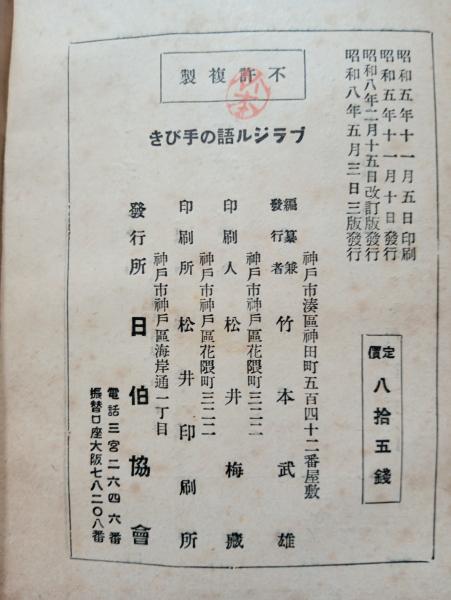 昭和五年十一月五日印刷
昭和五年十一月十日發行
昭和八年二月十五日改訂版發行
昭和八年五月三日三版發行
定價 八拾五錢
不許複製
ブラジル語の手びき
神戸市湊區神田町五百四十二番屋敷
編纂兼發行者 竹本武雄
神戸市神戸區花隈町三二二
印刷人 松井梅藏
神戸市神戸區花隈町三二二
印刷所 松井印刷所
神戸市神戸區海岸通一丁目
發行所 日伯協會
電話三宮二六四六番
振替口座大阪七八二〇八番